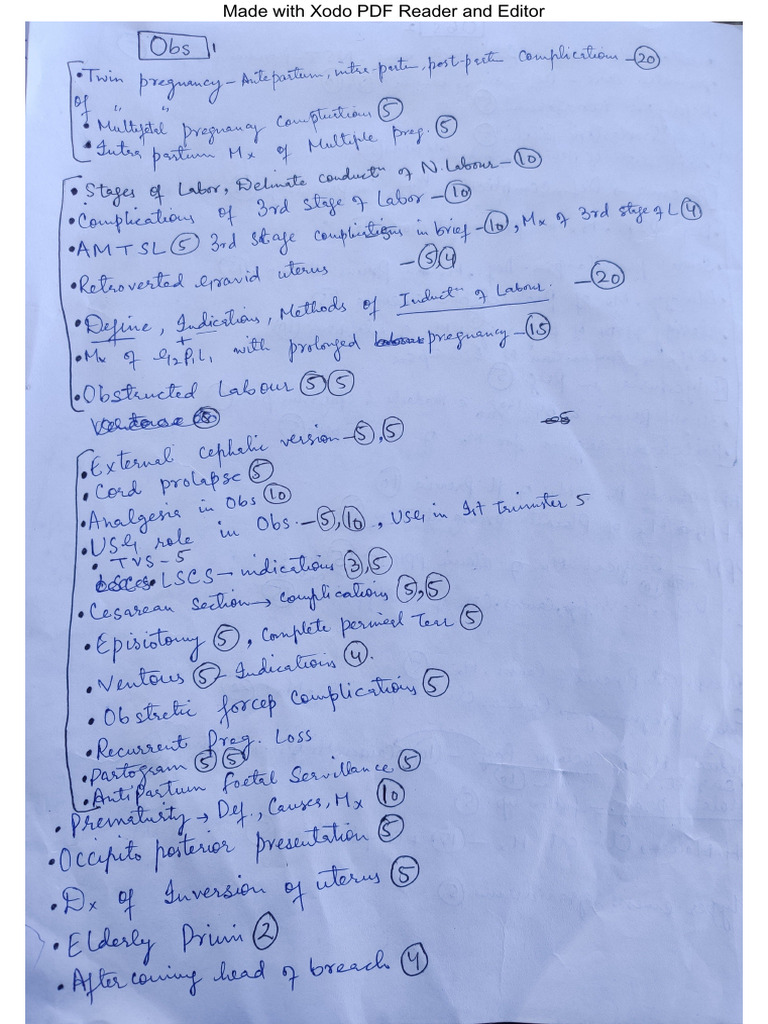 Made with Xodo PDF Reader and Editor
Obs
• Twin pregnancy – Antepartum, intra-partm, post-partm Complication – 20
of " "
• Multifetal pregnancy complications 5
• Intra partum Mx of Multiple preg. 5
• Stages of Labor, Deliniate conductn of N. Labour – 10
• Complications of 3rd Stage of Labor – 10
• AMTSL 5 3rd Stage complications in brief – 10, Mx of 3rd stage of L 4
• Retroverted Gravid uterus – 5 4
• Define, Indications, Methods of Inductn of Labour. – 20
+
• Mx of G2P1L1 with prolonged pregnancy – 15
• Obstructed Labour 5 5
• External cephalic version – 5, 5
• Cord prolapse 5
• Analgesia in Obs 10
• USG role in Obs. – 5, 10, USG in Ist trimister 5
• TVS – 5
• LSCS → indications 3, 5
• Cesarean Section → complications 5, 5
• Episiotomy 5, Complete perineal Tear 5
• Ventous 5 – Indications 4.
• Obstretic forcep complications 5
• Recurrent Preg. Loss
• Partogram 5 5
• Antipartum foetal Servillance 5
• Prematurity → Def., Causes, Mx 10
• Occipito posterior presentation 5
• Dx of Inversion of uterus 5
• Elderly Primi 2
• After coming head of breach 4